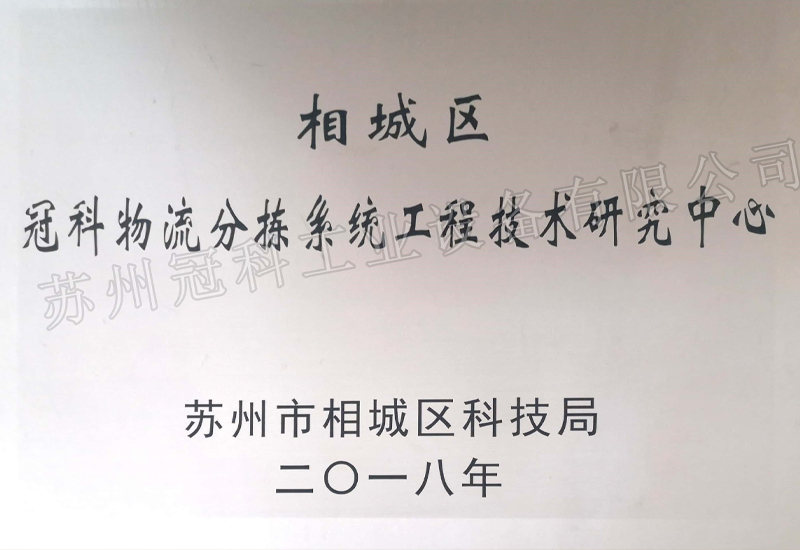 相城区
冠科物流分拣系统工程技术研究中心
苏州冠科工业设备有限公司
苏州市相城区科技局
二〇一八年